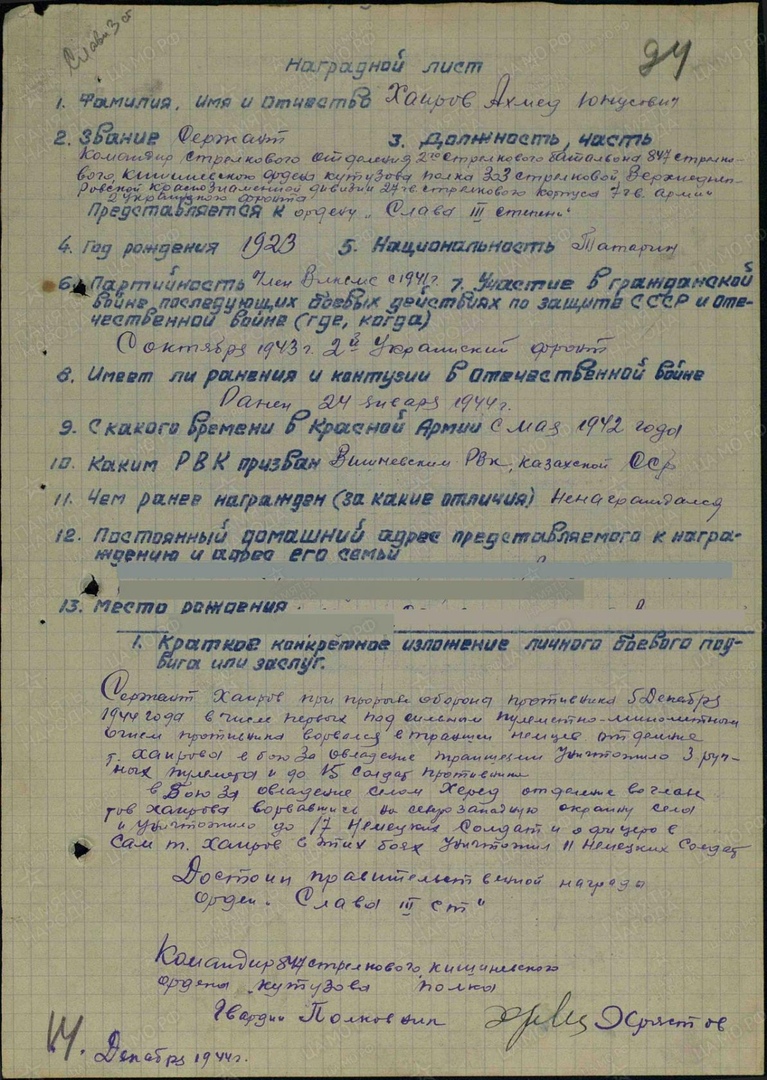 Слава 3 ст
94
Наградной лист
1. Фамилия, имя и отчество Хаиров Ахмед Юнусович
2. Звание Сержант 3. Должность, часть
Командир стрелкового отделения 2го стрелкового батальона 847 стрелко-
вого, Кишиневского ордена кутузова полка 303 стрелковой Верхнеднеп-
Ровской Краснознаменной дивизии 27 гв. стрелкового корпуса 7 гв. Армии
2 украинского фронта
Представляется к ордену „Слава III степени"
4. Год рождения 1923 5. Национальность Татарин
6. Партийность Член Влксмс с 1941г. 7. Участие в гражданской
войне, последующих боевых действиях по защите СССР и оте-
чественной войне (где, когда)
С октября 1943г. 2й Украинский фронт
8. Имеет ли ранения и контузии в отечественной войне
Ранен 24 января 1944г.
9. С какого времени в Красной Армии С мая 1942 года
10. Каким РВК призван Вишневским РВк, казахской ССР
11. Чем ранее награжден (за какие отличия) Ненаграждался
12. Постоянный домашний адрес представляемого к награ-
ждению и адрес его семьи
13. Место рождения
1. Краткое конкретное изложение личного боевого под-
вига или заслуг.
Сержант Хаиров при прорыве обороны противника 5 Декабря
1944 года в числе первых под сильным пулеметно-минометным
огнем противника ворвался в траншеи немцев отделение
т. Хаирова в бою За овладение траншеями Уничтожило 3 руч-
ных пулемета и до 15 солдат противника
в Бою За овладение селом Херед отделение во глав
тов Хаирова ворвавшись на северо западную окраину села
и Уничтожило до 17 Немецких Солдат и офицеров
Сам т. Хаиров в этих боях Уничтожил 11 Немецких Солдат
Достоин правительственной награды
Орден „Слава III ст"
Командир 847 стрелкового, кишиневского
ордена кутузова полка
Гвардии Полковник Хрястов
14. Декабря 1944г.